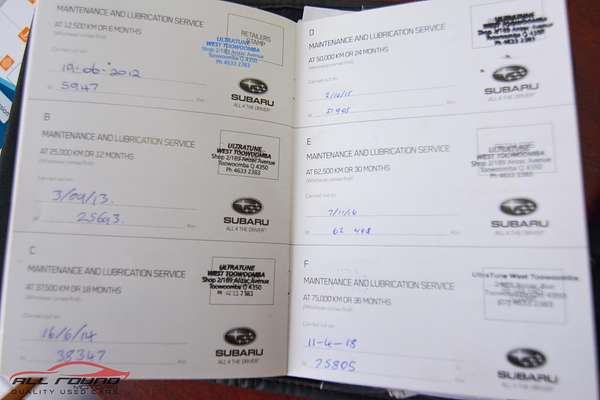 MAINTENANCE AND LUBRICATION SERVICE
AT 12,500 KM OR 6 MONTHS
(Whichever comes first)
RETAILERS
STAMP
ULTRATUNE
WEST TOOWOOMBA
Shop 2/189 Anzac Avenue
Toowoomba Q 4350
Ph 4633 2383
Carried out on
19-06-2012
At
5947
Km
SUBARU
ALL 4 THE DRIVER
B
MAINTENANCE AND LUBRICATION SERVICE
AT 25,000 KM OR 12 MONTHS
(Whichever comes first)
ULTRATUNE
WEST TOOWOOMBA
Shop 2/189 Anzac Avenue
Toowoomba Q 4350
Ph 4633 2383
Carried out on
3/09/13.
At
25693.
Km
SUBARU
ALL 4 THE DRIVER
C
MAINTENANCE AND LUBRICATION SERVICE
AT 37,500 KM OR 18 MONTHS
(Whichever comes first)
ULTRATUNE
WEST TOOWOOMBA
Shop 2/189 Anzac Avenue
Toowoomba Q 4350
Carried out on
16/6/14
At
38347
Km
SUBARU
ALL 4 THE DRIVER
D
MAINTENANCE AND LUBRICATION SERVICE
AT 50,000 KM OR 24 MONTHS
(Whichever comes first)
Shop 2/189 Anzac Avenue
Toowoomba Q 4350
Ph 4633 2383
Carried out on
At
Km
SUBARU
ALL 4 THE DRIVER
E
MAINTENANCE AND LUBRICATION SERVICE
AT 62,500 KM OR 30 MONTHS
(Whichever comes first)
ULTRATUNE
WEST TOOWOOMBA
Shop 2/189 Anzac Avenue
Toowoomba Q 4350
Ph 4633 2383
Carried out on
7/11/16
At
Km
SUBARU
ALL 4 THE DRIVER
F
MAINTENANCE AND LUBRICATION SERVICE
AT 75,000 KM OR 36 MONTHS
(Whichever comes first)
UltraTune West Toowoomba
Carried out on
11-4-18
At
75805
Km
SUBARU
ALL 4 THE DRIVER
ALL ROUND
QUALITY USED CARS